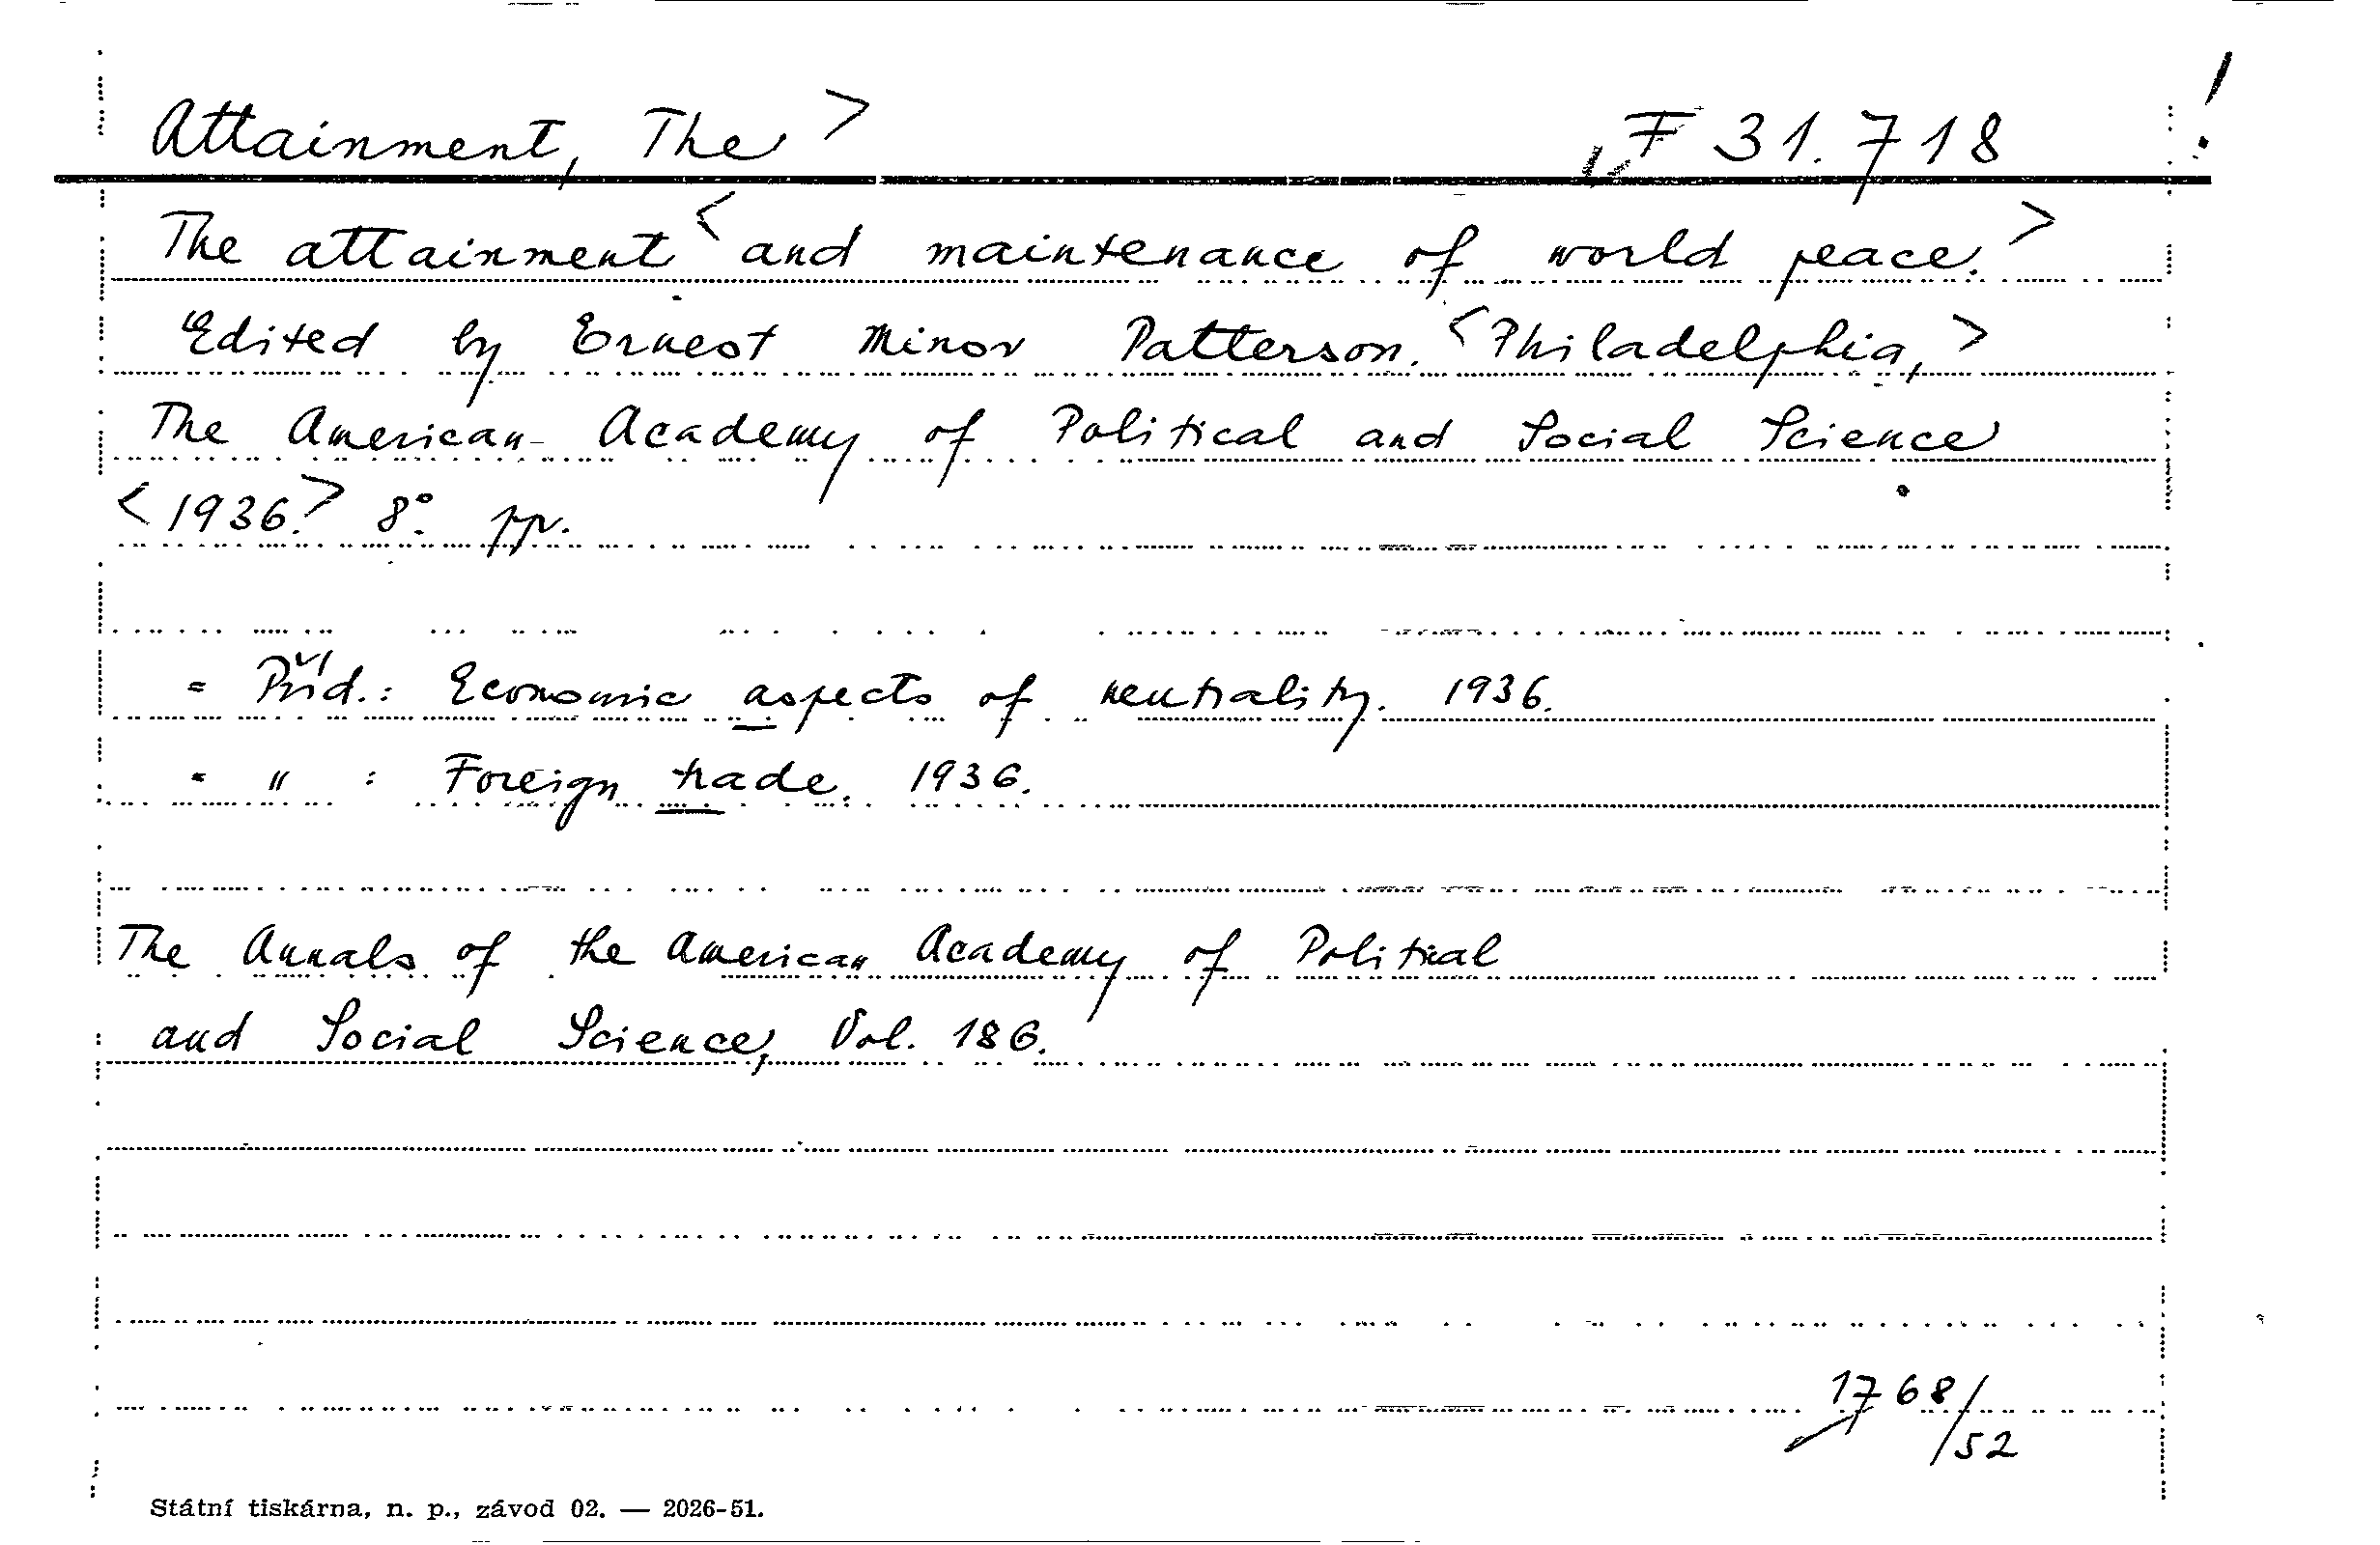 Attainment, The > F 31.718 !
The attainment < and maintenance of world peace. >
Edited by Ernest Minor Patterson. < Philadelphia, >
The American Academy of Political and Social Science
< 1936. > 8°. pp.
= Příd.: Economic aspects of neutrality. 1936.
= " : Foreign trade. 1936.
The Annals of the American Academy of Political
and Social Science, Vol. 186.
1768/52
Státní tiskárna, n. p., závod 02. — 2026-51.